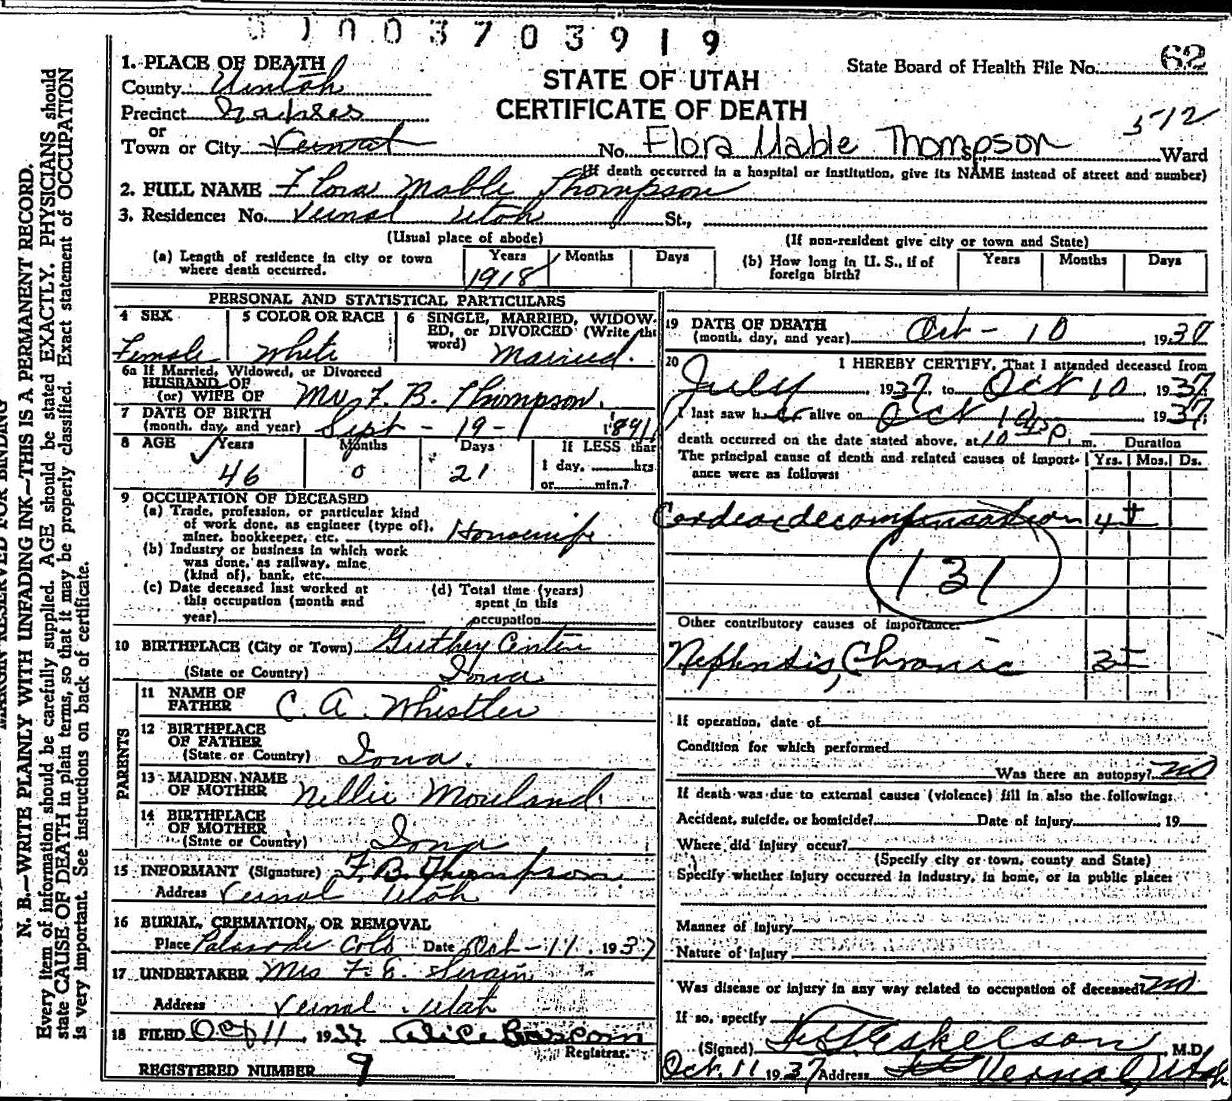 01003703919
STATE OF UTAH
CERTIFICATE OF DEATH
State Board of Health File No. 62
512
1. PLACE OF DEATH
County Uintah
Precinct
or
Town or City Vernal No. Flora Mable Thompson S, Ward
(If death occurred in a hospital or institution, give its NAME instead of street and number)
2. FULL NAME Flora Mable Thompson
3. Residence: No. Vernal Utah St.,
(Usual place of abode) (If non-resident give city or town and State)
(a) Length of residence in city or town where death occurred. Years Months Days
1918
(b) How long in U. S., if of foreign birth? Years Months Days
PERSONAL AND STATISTICAL PARTICULARS
4 SEX 5 COLOR OR RACE 6 SINGLE, MARRIED, WIDOWED, or DIVORCED (Write the word)
Female White Married.
6a If Married, Widowed, or Divorced
HUSBAND OF
(or) WIFE OF F. B. Thompson.
7 DATE OF BIRTH
(month, day, and year) Sept - 19 - 1891
8 AGE Years Months Days If LESS than
46 0 21 1 day, hrs.
or min.?
9 OCCUPATION OF DECEASED
(a) Trade, profession, or particular kind
of work done, as engineer (type of),
miner, bookkeeper, etc. Housewife
(b) Industry or business in which work
was done, as railway, mine
(kind of), bank, etc.
(c) Date deceased last worked at
this occupation (month and
year)
(d) Total time (years)
spent in this
occupation
10 BIRTHPLACE (City or Town) Guthey Center
(State or Country) Iowa
PARENTS
11 NAME OF
FATHER C. A. Whistler
12 BIRTHPLACE
OF FATHER
(State or Country) Iowa.
13 MAIDEN NAME
OF MOTHER Nellie Moreland.
14 BIRTHPLACE
OF MOTHER
(State or Country) Iowa
15 INFORMANT (Signature) F. B. Thompson
Address Vernal Utah
16 BURIAL, CREMATION, OR REMOVAL
Place Palisade Colo Date Oct - 11 1937
17 UNDERTAKER Mrs F. E. Swain
Address Vernal Utah
18 FILED Oct 11 1937 Alice Bascom
Registrar.
REGISTERED NUMBER 9
19 DATE OF DEATH
(month, day, and year) Oct - 10 1937
20 I HEREBY CERTIFY, That I attended deceased from
July 1937 to Oct 10 1937
I last saw her alive on Oct 10 1937
death occurred on the date stated above, at 10 45 P m. Duration
The principal cause of death and related causes of importance were as follows: Yrs. Mos. Ds.
Cardiac decompensation 4 +
131
Other contributory causes of importance:
Nephritis, Chronic
If operation, date of
Condition for which performed
Was there an autopsy? no
If death was due to external causes (violence) fill in also the following:
Accident, suicide, or homicide? Date of injury 19
Where did injury occur?
(Specify city or town, county and State)
Specify whether injury occurred in industry, in home, or in public place:
Manner of injury
Nature of injury
Was disease or injury in any way related to occupation of deceased? no
If so, specify
(Signed) Eskelson M.D.
Oct. 11 1937 Address Vernal, Utah
MARGIN RESERVED FOR BINDING
N. B.—WRITE PLAINLY WITH UNFADING INK—THIS IS A PERMANENT RECORD.
Every item of information should be carefully supplied. AGE should be stated EXACTLY. PHYSICIANS should
state CAUSE OF DEATH in plain terms, so that it may be properly classified. Exact statement of OCCUPATION
is very important. See instructions on back of certificate.